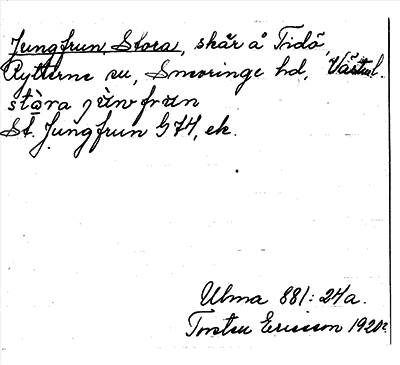 Jungfrun, Stora, skär å Tidö,
Rytterne sn, Snevringe hd, Västml.
stɑ̀ra jùnfrun
St. Jungfrun GK, ek.
Ulma 881:24a.
Torsten Ericsson 1920